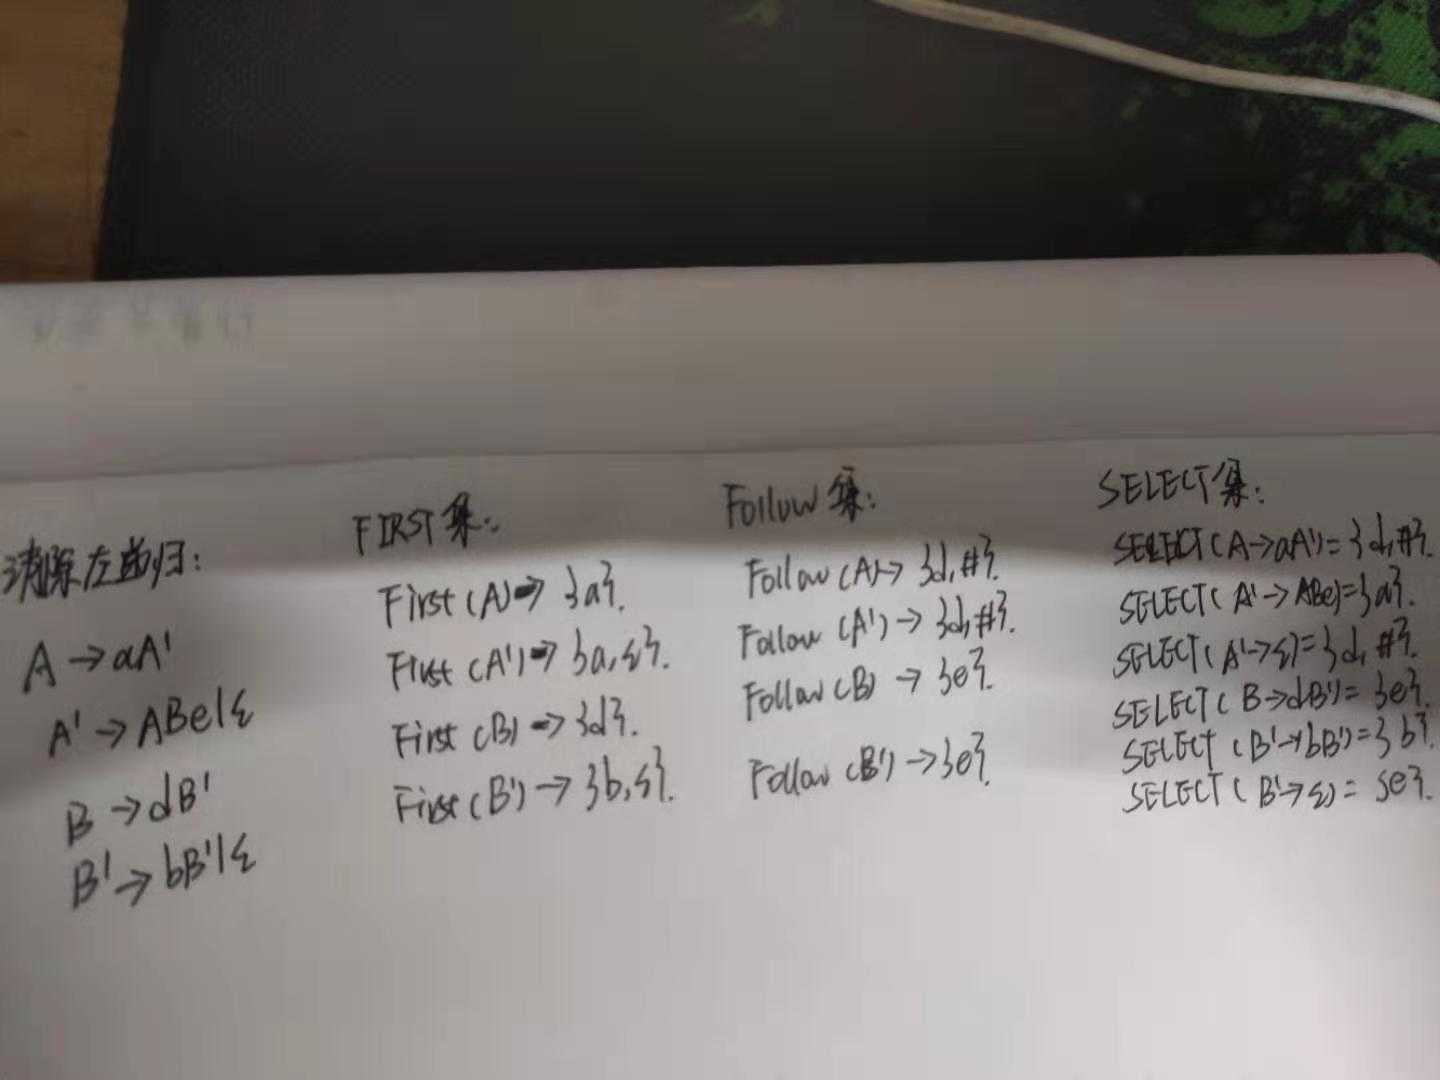 消除左递归:
A→aA'
A'→ABe|ε
B→dB'
B'→bB'|ε
FIRST集:
First(A)→{a}.
First(A')→{a,ε}.
First(B)→{d}.
First(B')→{b,ε}.
Follow集:
Follow(A)→{d,#}.
Follow(A')→{d,#}.
Follow(B)→{e}.
Follow(B')→{e}.
SELECT集:
SELECT(A→aA')={d,#}.
SELECT(A'→ABe)={a}.
SELECT(A'→ε)={d,#}.
SELECT(B→dB')={e}.
SELECT(B'→bB')={b}.
SELECT(B'→ε)={e}.